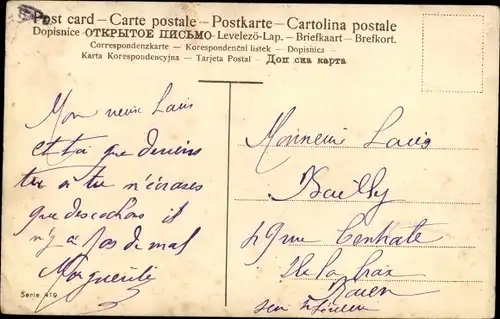 Post card – Carte postale – Postkarte – Cartolina postale
Dopisnice – ОТКРЫТОЕ ПИСЬМО – Levelező-Lap. – Briefkaart – Brefkort.
Correspondenzkarte – Korespondenční listek – Dopisnica –
Karta Korespondencyjna – Tarjeta Postal – Доп сна карта
Mon vieux Louis
et toi que deviens
tu si tu n'écrases
que des cochons il
n'y a pas de mal
Marguerite
Serie 419
Monsieur Louis
Bailly
49 rue Centrale
Ile la Croix
Rouen